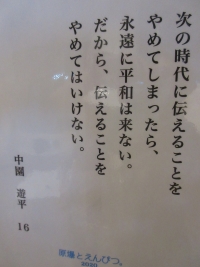 次の時代に伝えることを
やめてしまったら、
永遠に平和は来ない。
だから、伝えることを
やめてはいけない。
中園 遊平 16
原爆とえんぴつ。
2020